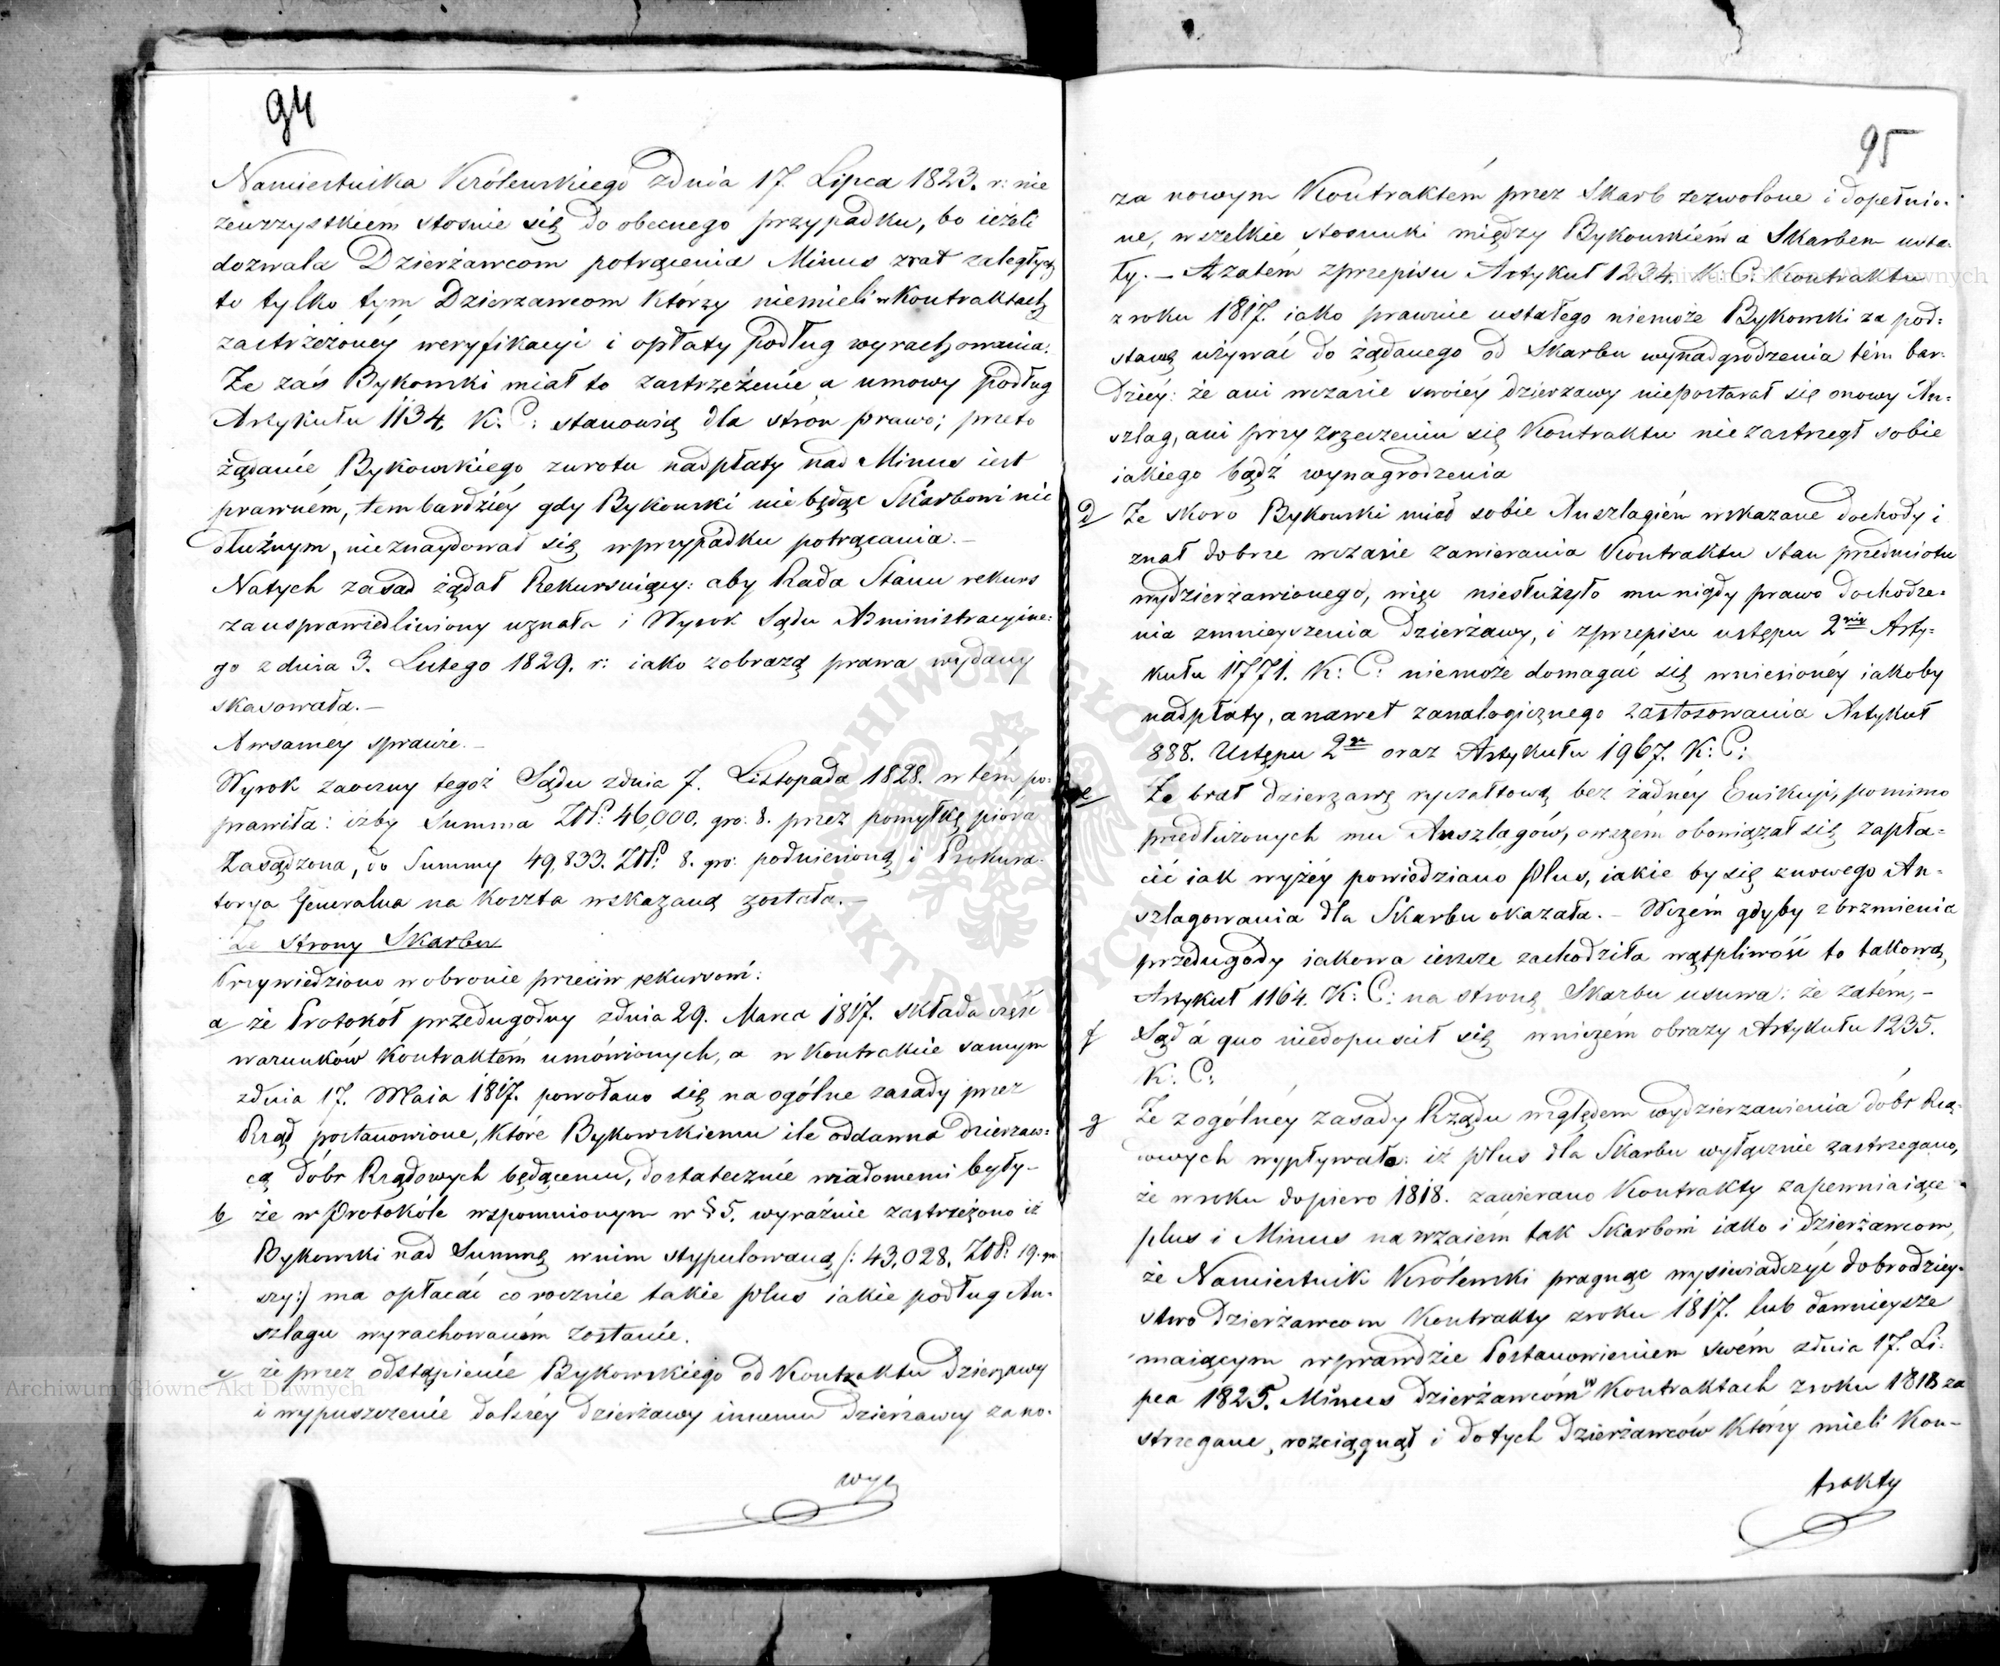 94
Namiestnika Królewskiego z dnia 17. Lipca 1823. r: nie
zewszystkiém stosuie się do obecnego przypadku, bo ieżeli
dozwala Dzierżawcom potrącenia Minus zrat zaległych
to tylko tym Dzierżawcom którzy niemieli w Kontraktach
zastrzeżonéy weryfikacyi i opłaty podług wyrachowania.
Że zaś Bykowski miał to zastrzeżenie a umowy podług
Artykułu 1134. K: C: stanowią dla strón prawo; przeto
żądanie Bykowskiego zwrotu nadpłaty nad Minus iest
prawném, tembardziéy gdy Bykowski nie będąc Skarbowi nic
dłużnym, nieznaydował się w przypadku potrącania. –
Natych zasad żądał Rekursuiący: aby Rada Stanu rekurs
za usprawiedliwiony uznała i Wyrok Sądu Administracyine:
go z dnia 3. Lutego 1829. r: iako z obrazą prawa wydany
skasowała. –
A w saméy sprawie. –
Wyrok zaoczny tegoż Sądu z dnia 7. Listopada 1828. w tém po:
prawiła: iżby Summa Złł: 46,000. gro: 8. przez pomyłkę pióra
Zasądzona, do Summy 49,833. Złł: 8. gro: podniesioną i Prokura:
torya Generalna na koszta wskazaną została. –
Ze strony Skarbu
Przywiedziono w obronie przeciw rekursowi:
a/ że Protokół przedugodny z dnia 29. Marca 1817. składa część
warunków Kontraktém umówionych, a w Kontrakcie samym
z dnia 17. Maia 1817. powołano się na ogólne zasady przez
Rząd postanowione, które Bykowskiemu ile oddawna dzierżaw:
cą dóbr Rządowych będącemu, dostatecznie wiadomemi były –
b/ że w Protokóle wspomnionym w § 5. wyraźnie zastrzeżono iż
Bykowski nad Summę w nim stypulowaną /: 43,028. Złł: 19. gr
szy :/ ma opłacać corocznie takie plus iakie podług An:
szlagu wyrachowaném zostanie.
c/ że przez odstąpienie Bykowskiego od Kontraktu Dzierżawy
i wypuszczenie dalszéy Dzierżawy innemu Dzierżawcy za no:
wym
95
za nowym Kontraktém przez Skarb zezwolone i dopełnio:
ne, wszelkie stosunki między Bykowskiém a Skarbem usta:
ły. – A zatém z przepisu Artykuł 1234. K: C: Kontraktu
z roku 1817. iako prawnie ustałego niemoże Bykowski za pod:
stawę używać do żądanego od Skarbu wynadgrodzenia tém bar:
dziéy: że ani w czasie swoiéy dzierżawy niepostarał się o nowy An:
szlag, ani przy zrzeczeniu się Kontraktu nie zastrzegł sobie
iakiego bądź wynagrodzenia
d/ Że skoro Bykowski miał sobie Anszlagiém wskazane dochody i
znał dobrze w czasie zawierania Kontraktu stan przedmiotu
wydzierżawionego, więc niesłużyło mu nigdy prawo dochodze:
nia zmnieyszenia Dzierżawy, i z przepisu ustępu 2go Arty:
kułu 1771. K: C: niemoże domagać się wniesionéy iakoby
nadpłaty, a nawet z analogicznego zastosowania Artykuł
888. Ustępu 2go oraz Artykułu 1967. K: C:
e/ Że brał dzierżawę ryczałtową bez żadnéy Ewikcyi, pomimo
przedłużonych mu Anszlagów, owszém obowiązał się zapła:
cić iak wyżéy powiedziano plus, iakie by się z nowego An:
szlagowania dla Skarbu okazała. – Wczém gdyby z brzmienia
przedugody iakowa ieszcze zachodziła wątpliwość to takową,
Artykuł 1164. K: C: na stronę Skarbu usuwa: że zatém, –
f Sąd à quo niedopuścił się wniczém obrazy Artykułu 1235.
K: C:
g Że z ogólnéy zasady Rządu względem wydzierżawienia dóbr Rzą:
dowych wypływało: iż plus dla Skarbu wyłącznie zastrzegano,
że w roku dopiero 1818. zawierano Kontrakty zapewniaiące
plus i Minus nawzaiém tak Skarbowi iako i dzierżawcom,
że Namiestnik Królewski pragnąc wyświadczyć dobrodziey:
stwo Dzierżawcom Kontrakty z roku 1817. lub dawnieysze
maiącym wprawdzie Postanowieniem swém z dnia 17. Li:
pca 1825. Minus Dzierżawcóm w Kontraktach z roku 1818 za
strzegane, rozciągnął i do tych Dzierżawców którzy mieli Kon:
trakty